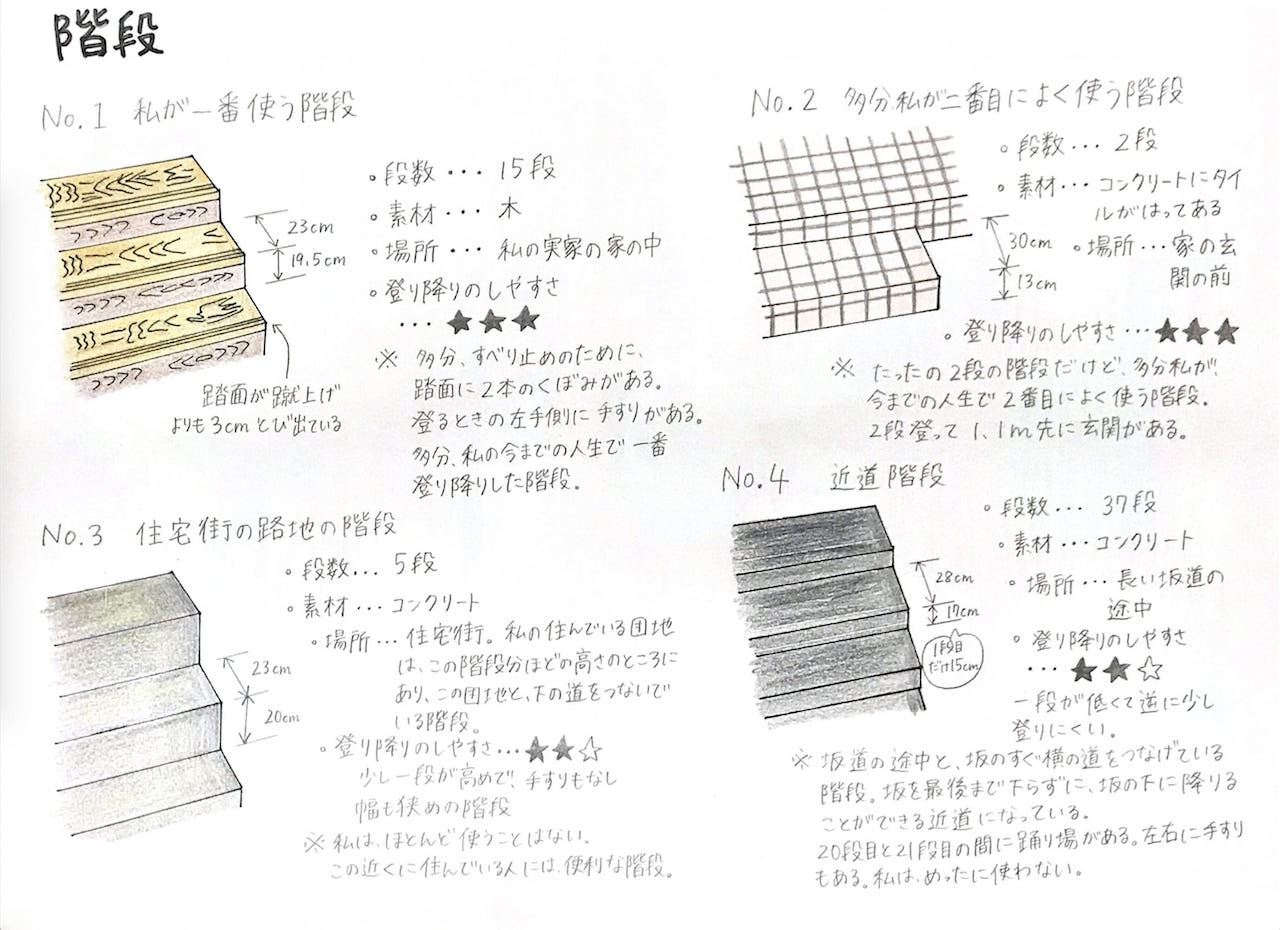 階段
No.1 私が一番使う階段
23cm
19.5cm
踏面が蹴上げ
よりも3cmとび出ている
。段数・・・15段
。素材・・・木
。場所・・・私の実家の家の中
。登り降りのしやすさ
・・・★★★
※ 多分、すべり止めのために、
踏面に2本のくぼみがある。
登るときの左手側に手すりがある。
多分、私の今までの人生で一番
登り降りした階段。
No.2 多分私が二番目によく使う階段
30cm
13cm
。段数・・・2段
。素材・・・コンクリートにタイ
ルがはってある
。場所・・・家の玄
関の前
。登り降りのしやすさ・・・★★★
※ たったの2段の階段だけど、多分私が、
今までの人生で2番目によく使う階段。
2段登って1.1m先に玄関がある。
No.3 住宅街の路地の階段
23cm
20cm
。段数...5段
。素材・・・コンクリート
。場所...住宅街。私の住んでいる団地
は、この階段分ほどの高さのところに
あり、この団地と、下の道をつないで
いる階段。
。登り降りのしやすさ・・・★★☆
少し一段が高めで、手すりもなし
幅も狭めの階段
※ 私は、ほとんど使うことはない。
この近くに住んでいる人には、便利な階段。
No.4 近道階段
28cm
17cm
1段目
だけ15cm
。段数・・・37段
。素材・・・コンクリート
。場所・・・長い坂道の
途中
。登り降りのしやすさ
・・・★★☆
一段が低くて逆に少し
登りにくい。
※ 坂道の途中と、坂のすぐ横の道をつなげている
階段。坂を最後まで下らずに、坂の下に降りる
ことができる近道になっている。
20段目と21段目の間に踊り場がある。左右に手すり
もある。私は、めったに使わない。